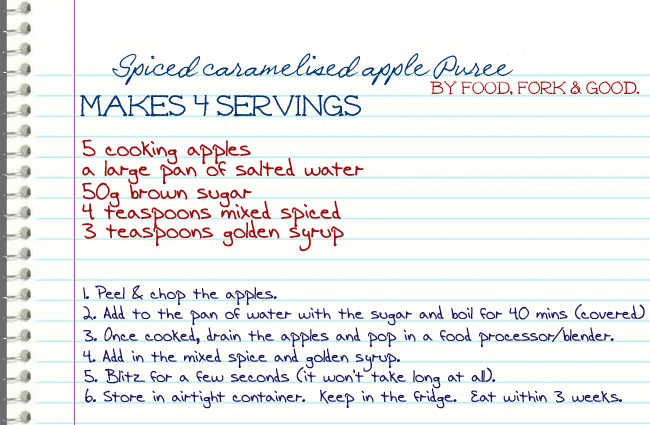 Spiced caramelised apple Puree
BY FOOD, FORK & GOOD.
MAKES 4 SERVINGS
5 cooking apples
a large pan of salted water
50g brown sugar
4 teaspoons mixed spiced
3 teaspoons golden syrup
1. Peel & chop the apples.
2. Add to the pan of water with the sugar and boil for 40 mins (covered)
3. Once cooked, drain the apples and pop in a food processor/blender.
4. Add in the mixed spice and golden syrup.
5. Blitz for a few seconds (it won't take long at all).
6. Store in airtight container. Keep in the fridge. Eat within 3 weeks.